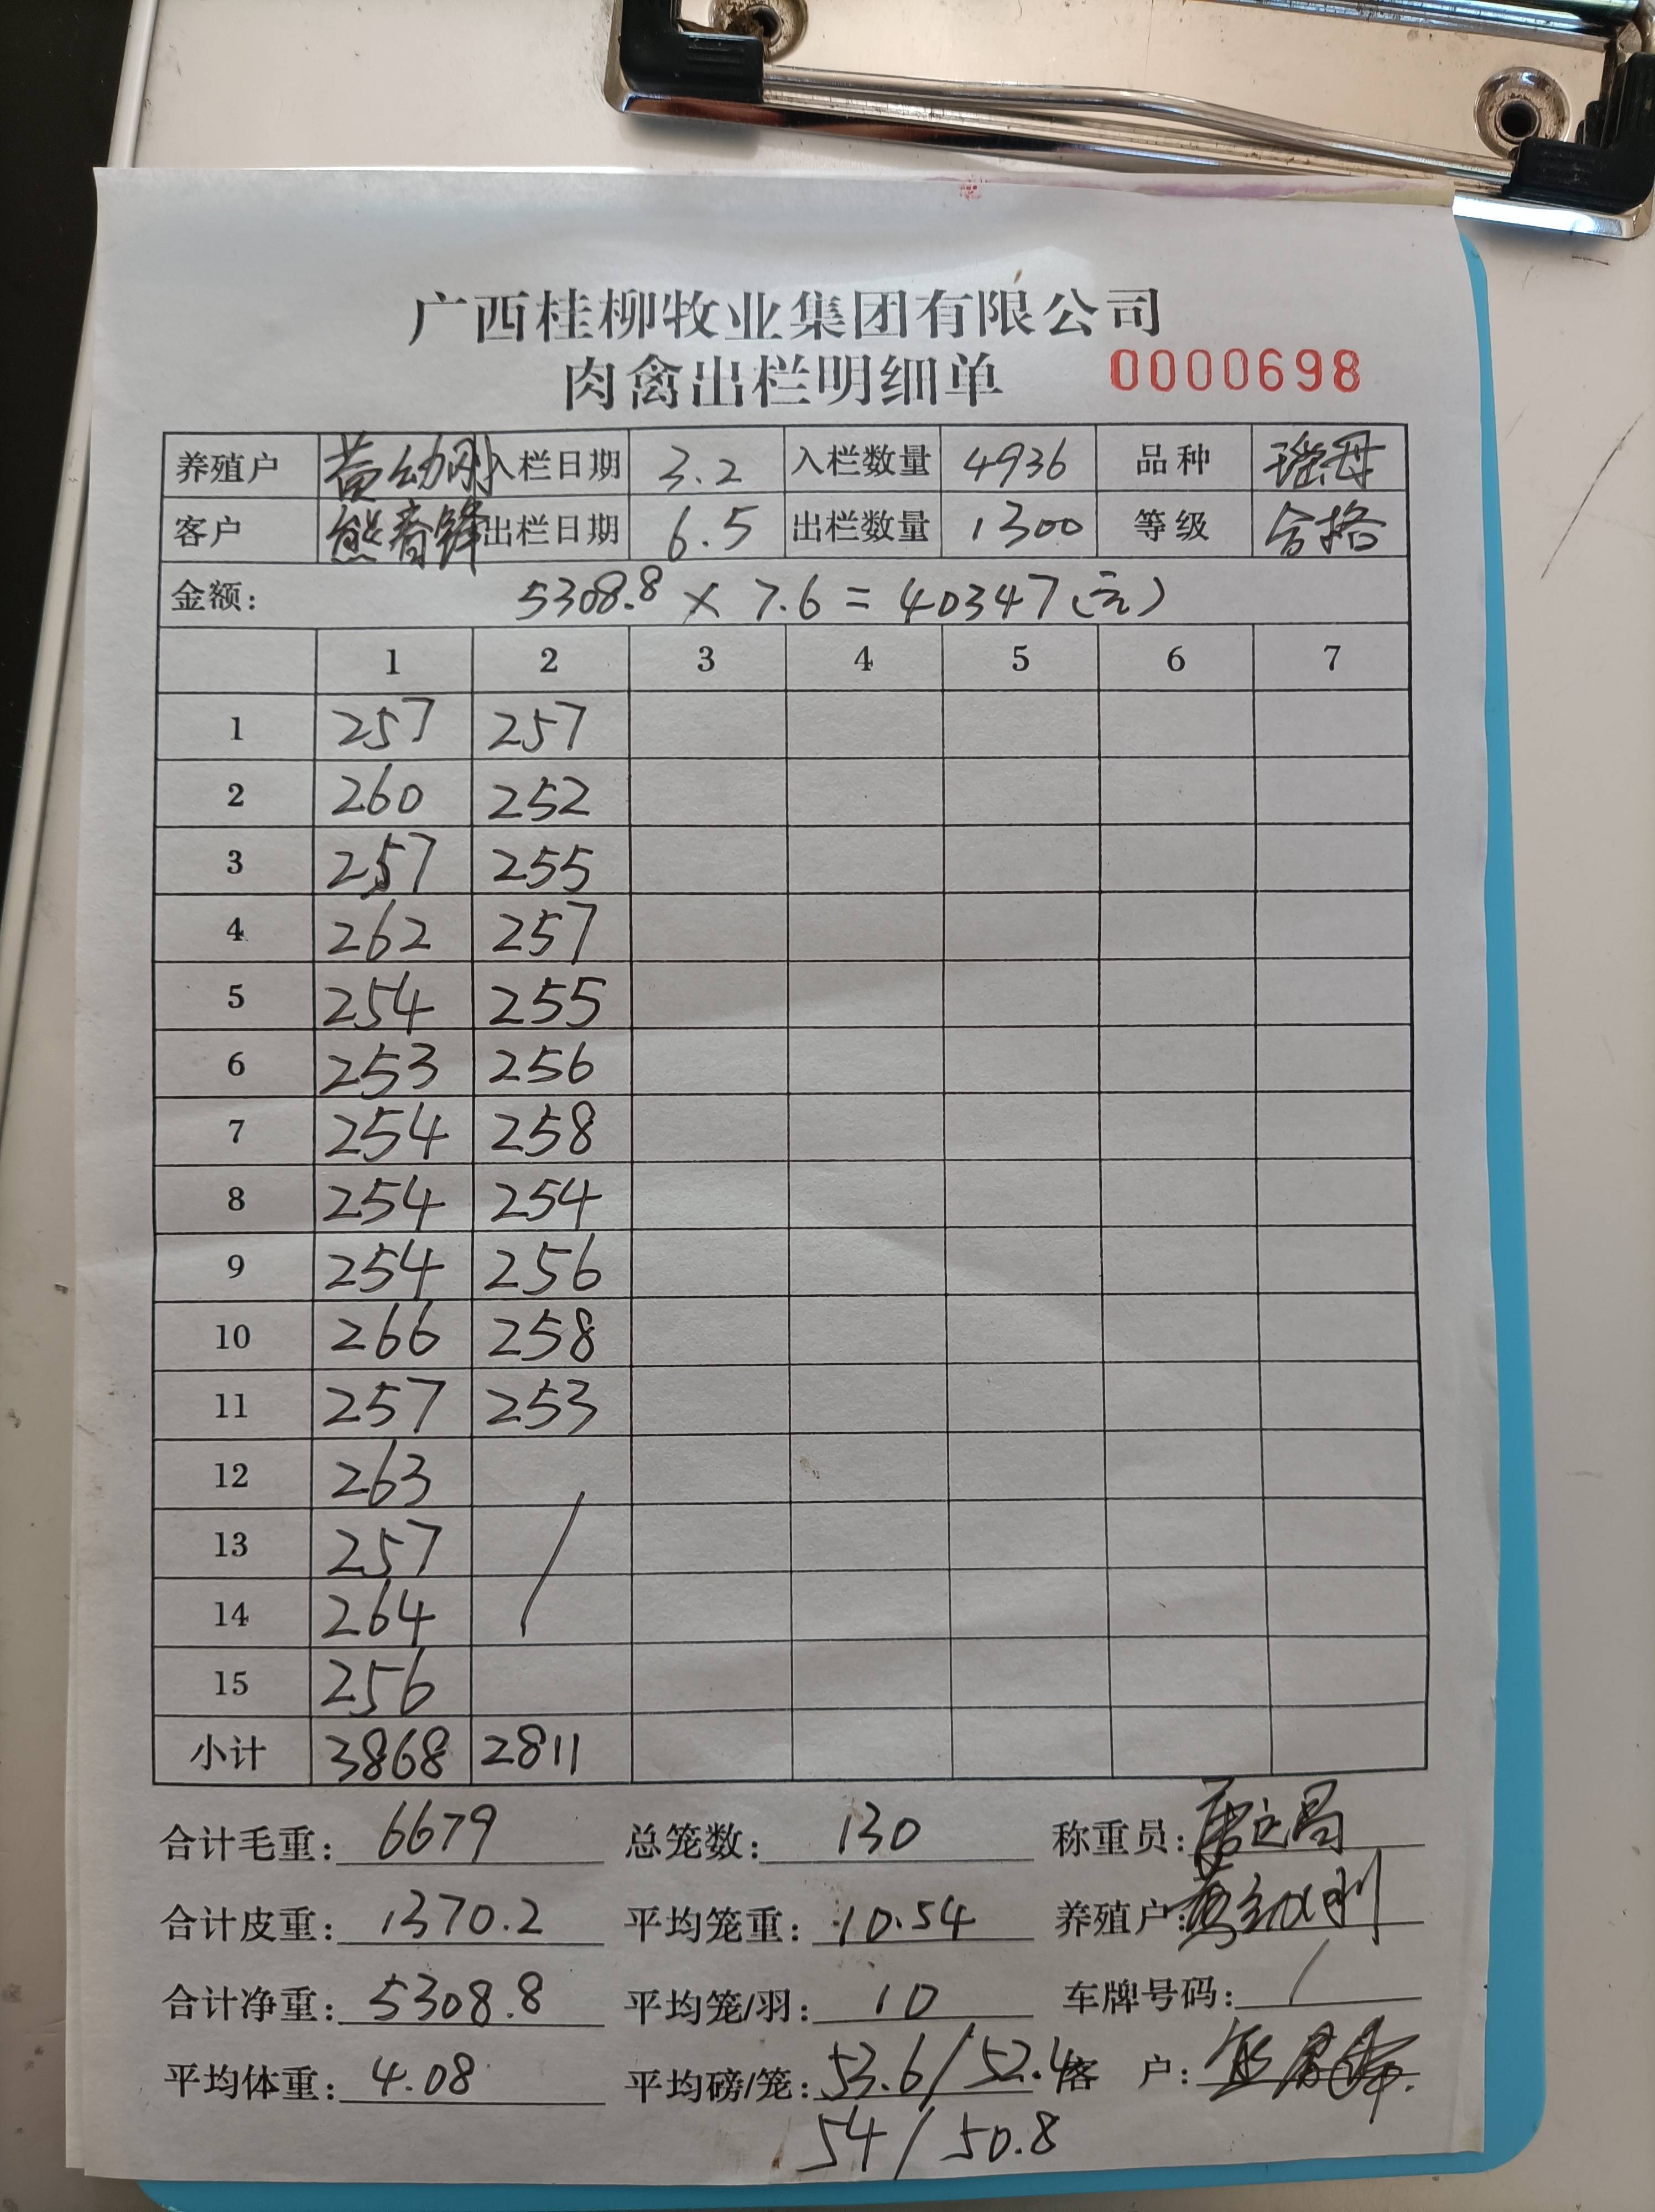 广西桂柳牧业集团有限公司
肉禽出栏明细单 0000698
养殖户 黄幼刚 入栏日期 3.2 入栏数量 4936 品种 瑶母
客户 熊春锋 出栏日期 6.5 出栏数量 1300 等级 合格
金额: 5308.8 × 7.6 = 40347(元)
1 2 3 4 5 6 7
1 257 257
2 260 252
3 257 255
4 262 257
5 254 255
6 253 256
7 254 258
8 254 254
9 254 256
10 266 258
11 257 253
12 263
13 257 /
14 264
15 256
小计 3868 2811
合计毛重: 6679 总笼数: 130 称重员:
合计皮重: 1370.2 平均笼重: 10.54 养殖户:
合计净重: 5308.8 平均笼/羽: 10 车牌号码: /
平均体重: 4.08 平均磅/笼: 53.6/52.4 客 户:
54/50.8